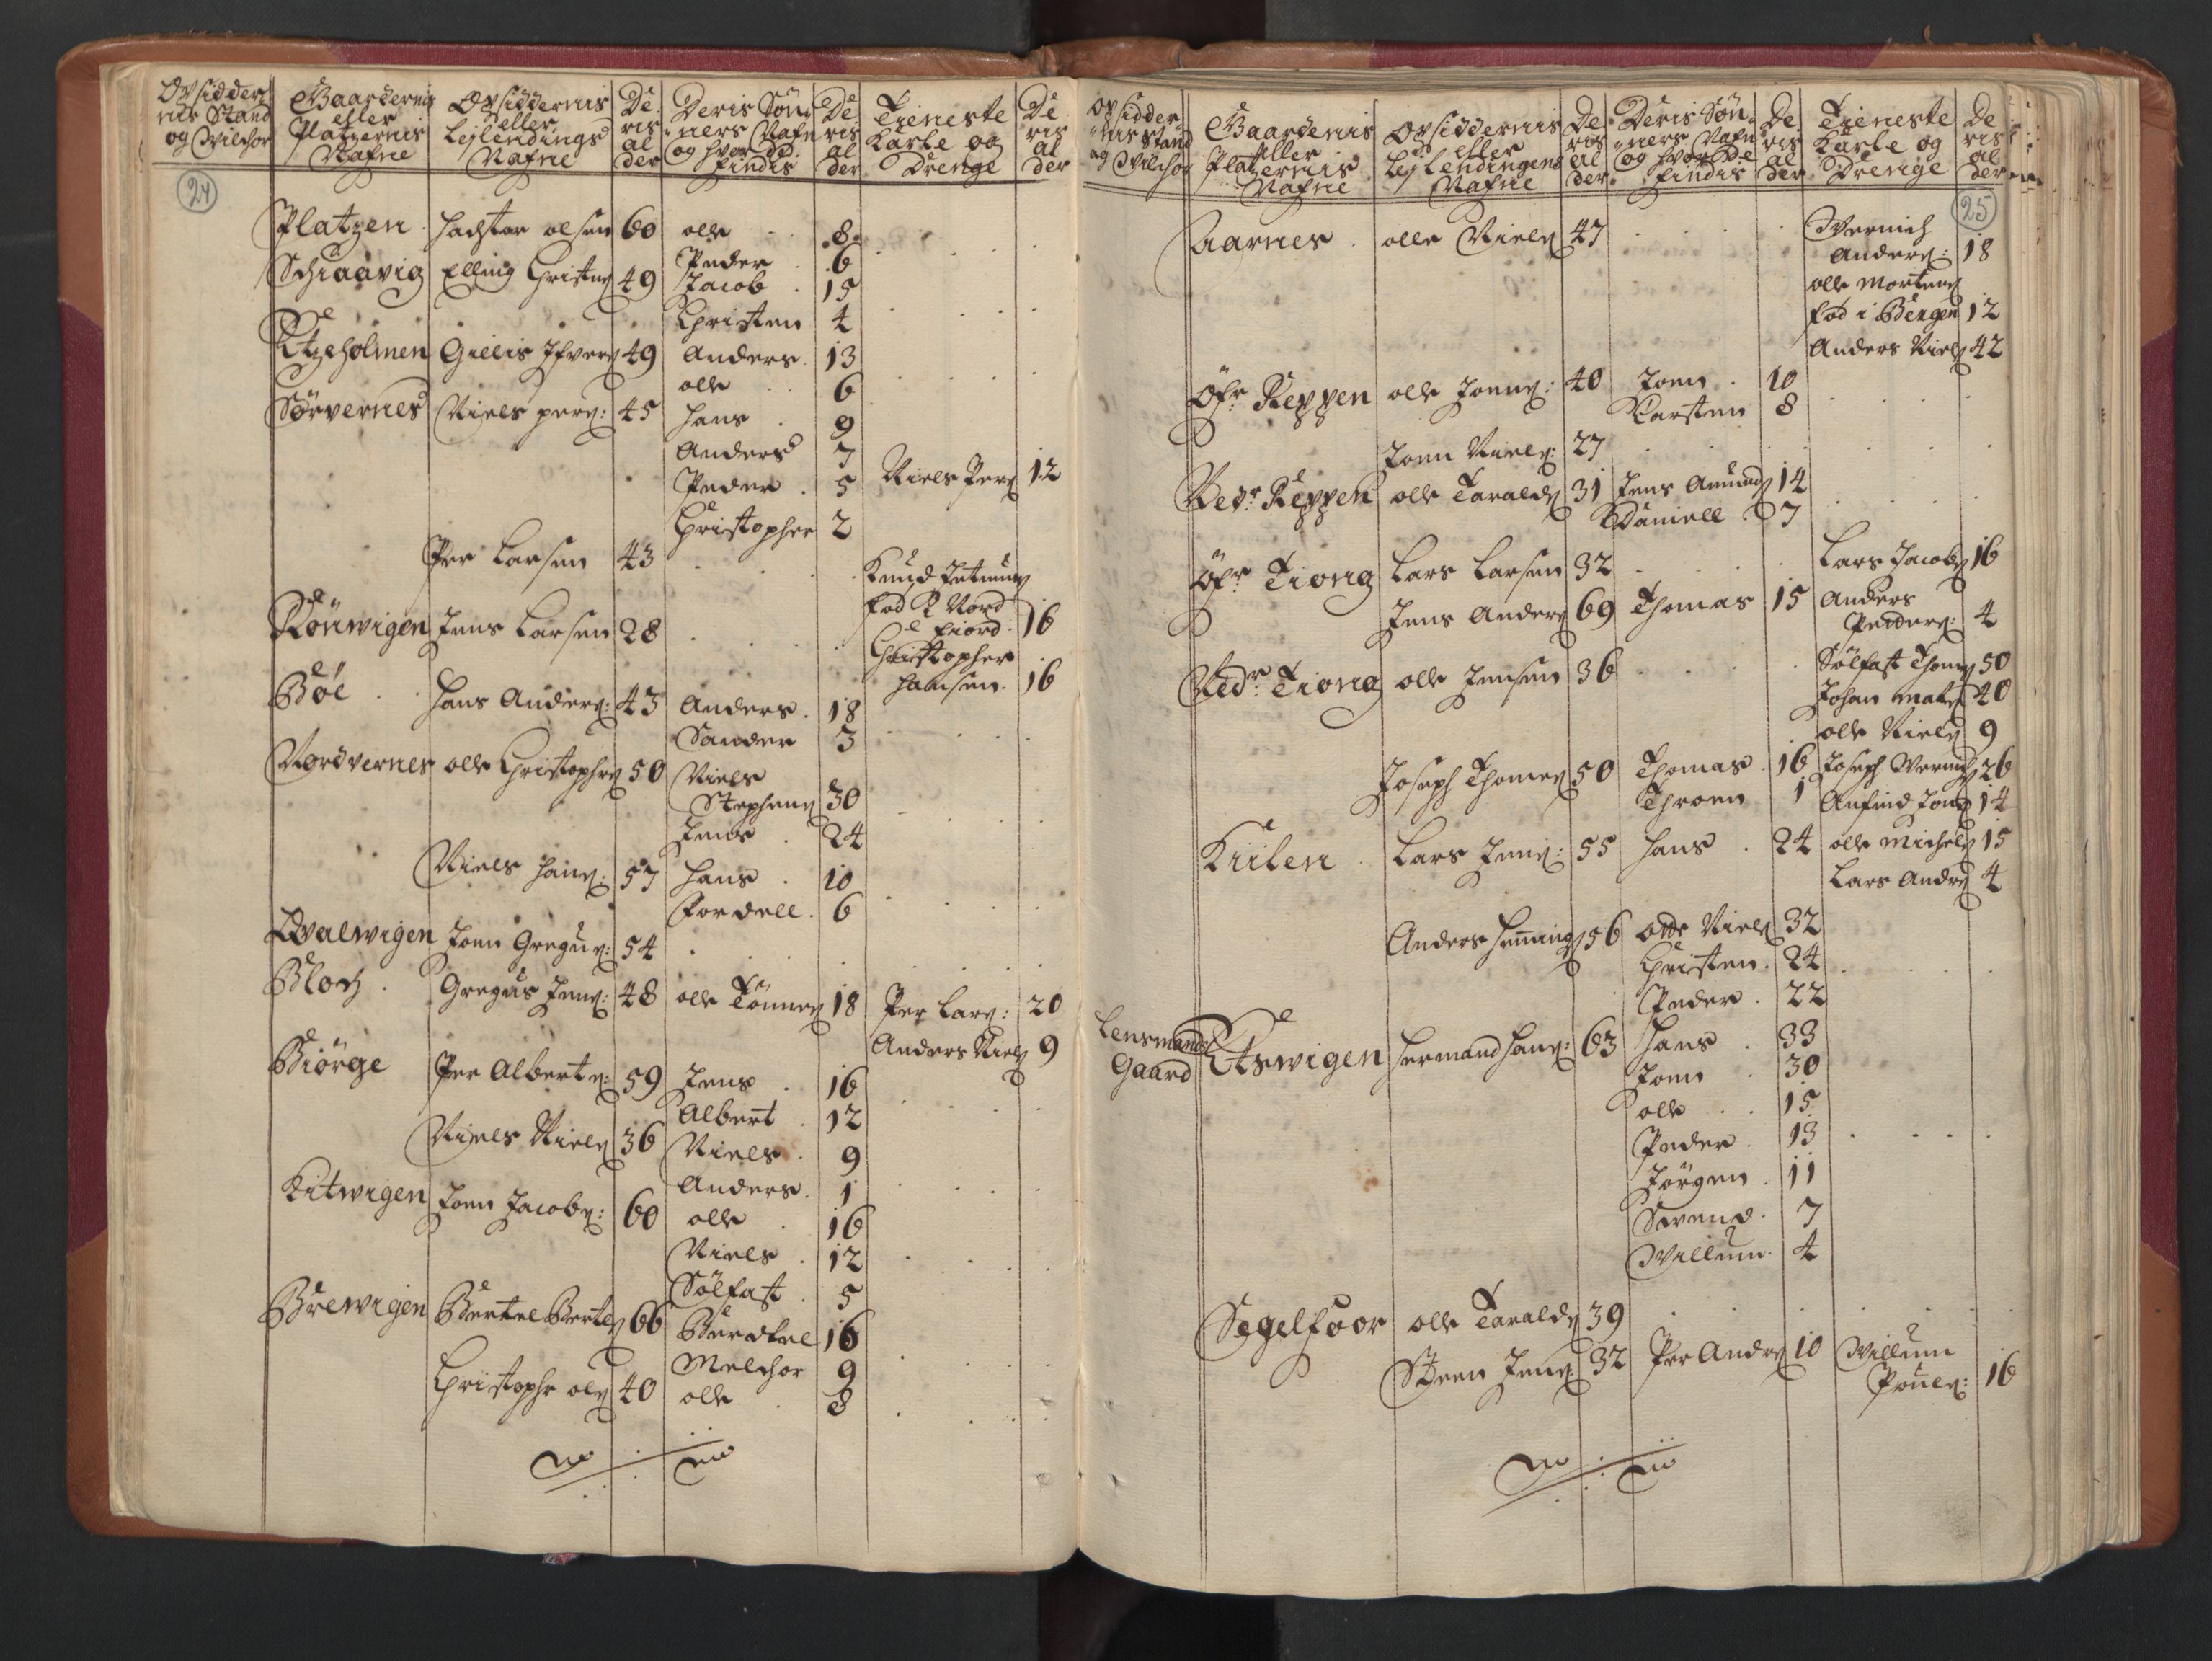 Opsidder
nis Stand
og Vilchor
Gaardernis
eller
Platzernis
Nafne
Opsiddernis
eller
Lejlendings
Nafne
De
ris
al
der
Deris Søn
ners Nafn
og hvor de
findis
De
ris
al
der
Tieneste
Karle og
Drenge
De
ris
al
der
24
Platzen Hachtor olsen 60 olle 8
Peder 6
Schiaavig Elling Christens 49 Jacob 15
Christen 4
Etzeholmen Gillis Ifvers 49 Anders 13
olle 6
Sørvernes Niels pers: 45 Hans 9
Anders 7
Peder 5 Niels Pers 12
Christopher 2
Per Larsen 43
Knud
fod i Nord
fiord 16
Rönwigen Jens Larsen 28
Christopher
Hansen 16
Böe Hans Anders: 43 Anders 18
Sander 3
Nordvernes olle Christophers 50 Niels
Stephens 30
Jens 24
Niels Hans: 57 Hans 10
Tordell 6
Qvalwigen Joen Gregus: 54
Bloch Gregus Jens: 48 olle Tönnes 18 Per Lars: 20
Anders Niels 9
Biörge Per Alberts: 59 Jens 16
Albert 12
Niels Niels 36 Niels 9
Anders 1
Kitwigen Joen Jacobs: 60 olle 16
Niels 12
Sölfast 5
Brewigen Bertel Bertels 66 Berdtel 16
Melchor 9
Christophr ols 40 olle 8
Opsidder
nis Stand
og Vilchor
Gaardenis
eller
Platzernis
Nafne
Opsiddernis
eller
Lejlendingens
Nafne
De
ris
al
der
Deris Søn
ners Nafn
og hvor de
findis
De
ris
al
der
Tieneste
Karle og
Drenge
De
ris
al
der
25
Aarnes olle Niels 47 Wernich
Anders: 18
olle Mortens
fod i Bergen 12
Anders Niels 42
Öfr Reppen olle Joens: 40 Joen 10
Karsten 8
Joen Niels: 27
Nedr Reppen olle Taralds 31 Jens Amunds 14
Daniell 7
Öfr Tiong Lars Larsen 32 Lars Jacobs 16
Jens Anders 69 Thomas 15 Anders
Peders: 4
Nedr Tiong olle Jensen 36 Sölfast Thoms 50
Johan Mats 40
olle Niels 9
Joseph Thomes 50 Thomas 16 Joseph Wernichs 26
Throen 1 Anfind Jons 14
Kiilen Lars Jens: 55 Hans 24 olle Michels 15
Lars Andrs 4
Anders Hennings 56 Otte Niels 32
Christen 24
Peder 22
Lensmands
Gaard
Etswigen Hermand Hans: 63 Hans 33
Joen 30
olle 15
Peder 13
Jörgen 11
Svend 7
Willum 4
Segelfoor olle Taralds 39
Steen Jens 32 Per Andrs 10 Willum
Pouls: 16